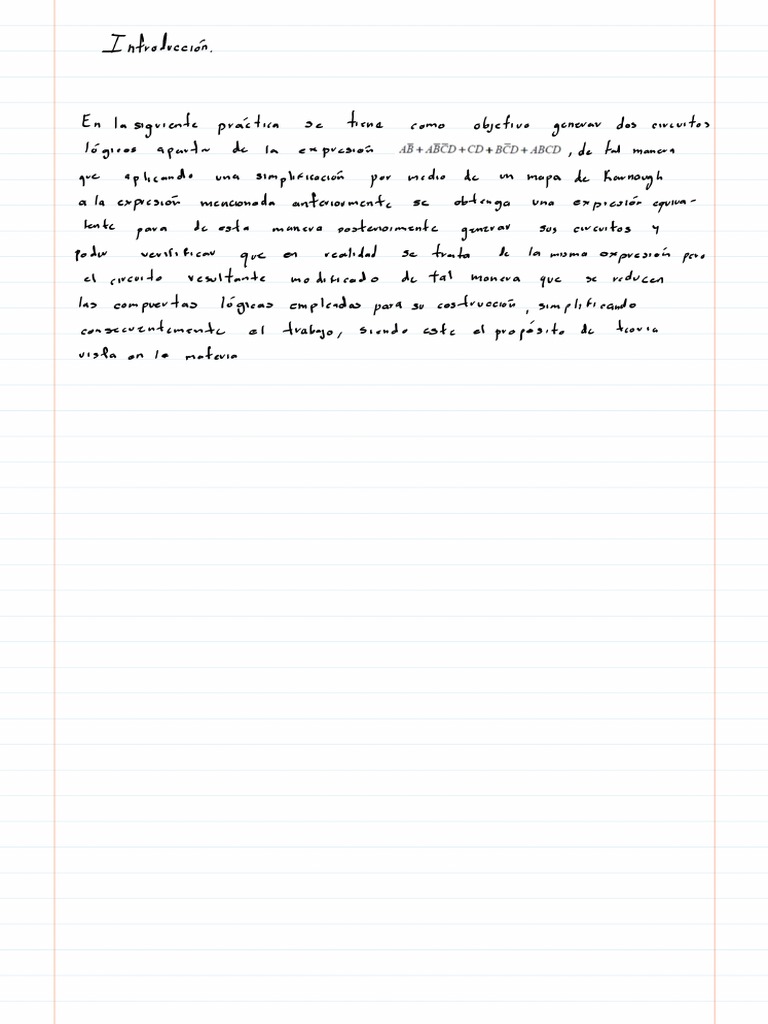 Introducción.
En la siguiente práctica se tiene como objetivo generar dos circuitos
lógicos apartir de la expresión AB̅ + AB̅C̅D + CD + BC̅D + ABCD, de tal manera
que aplicando una simplificación por medio de un mapa de Karnough
a la expresión mencionada anteriormente se obtenga una expresión equiva-
lente para de esta manera posteriormente generar sus circuitos y
poder verificar que en realidad se trata de la misma expresión pero
el circuito resultante modificado de tal manera que se reducen
las compuertas lógicas empleadas para su costrucción, simplificando
consecuentemente el trabajo, siendo este el propósito de teoria
vista en la materia